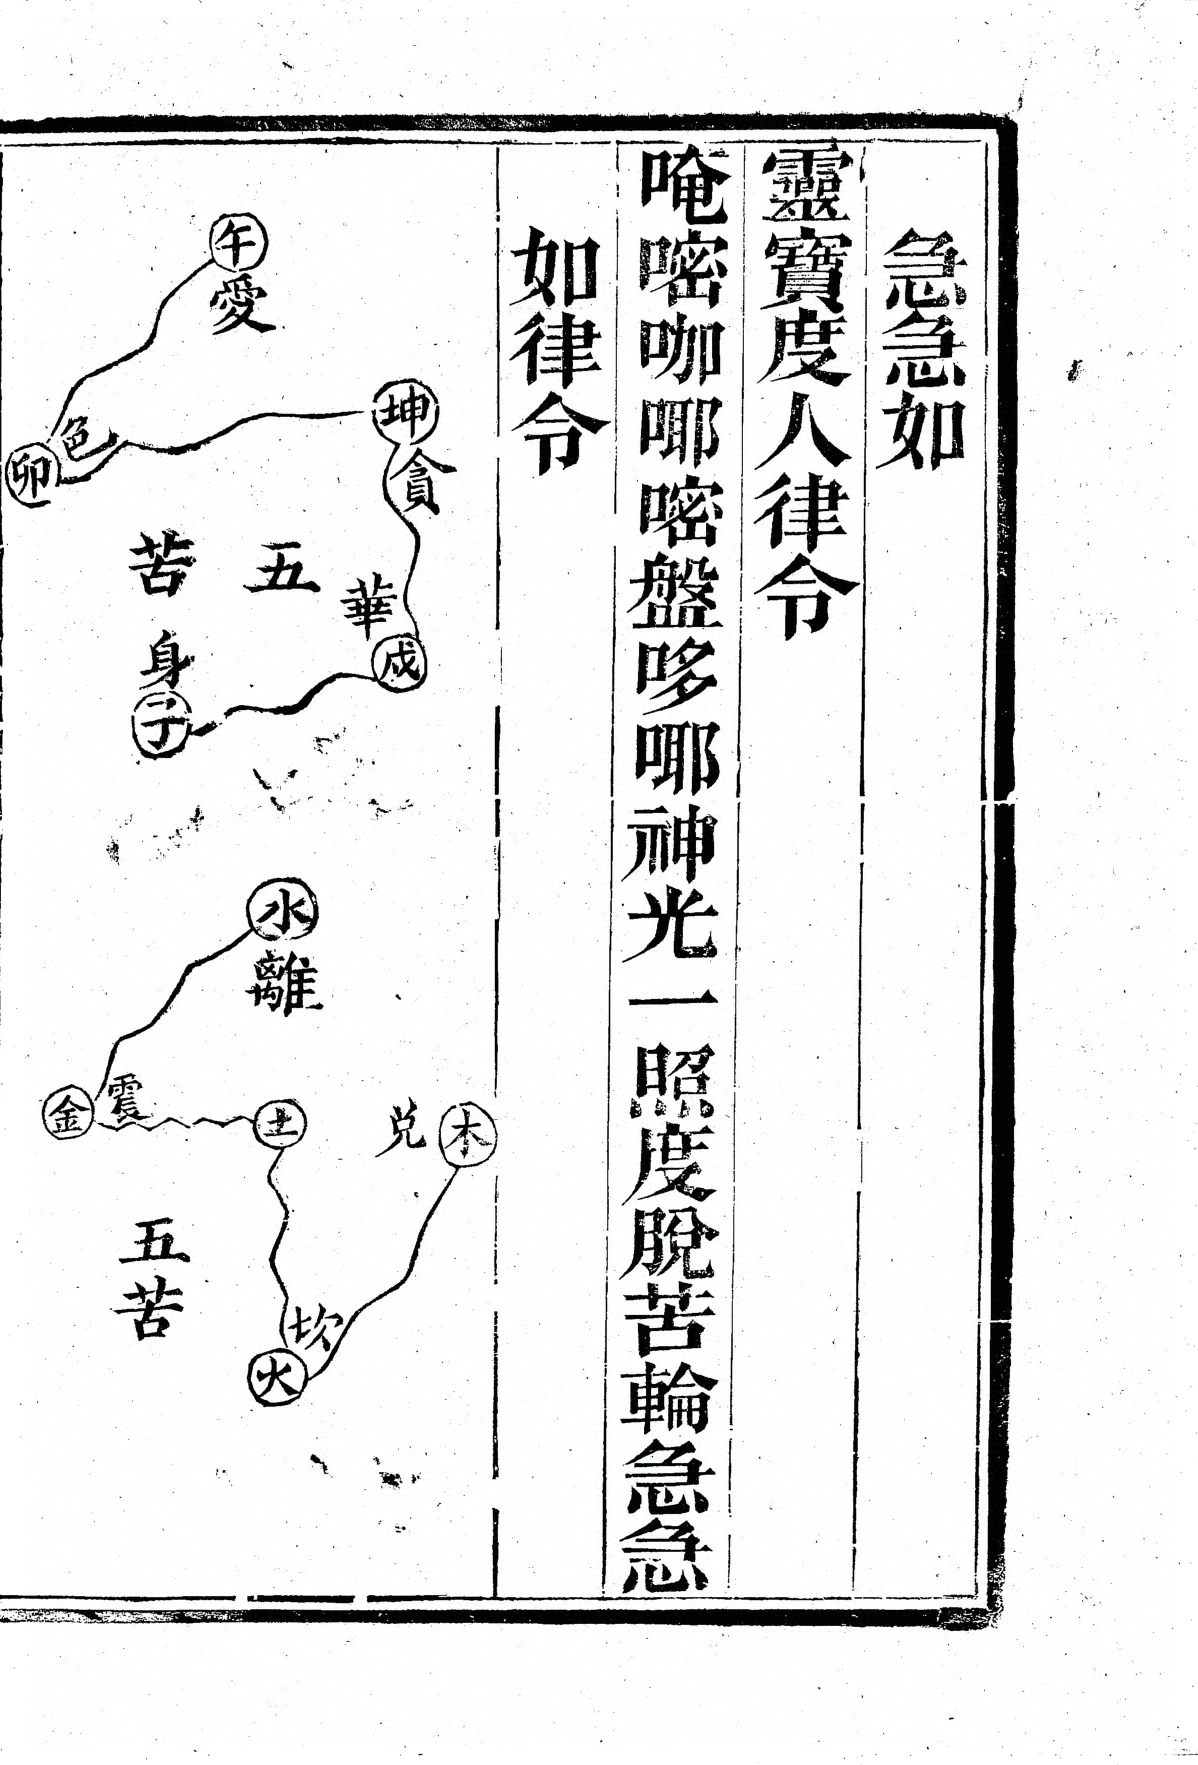 急急如
靈寶度人律令
唵嘧咖哪嘧盤哆哪神光一照度脫苦輪急急
如律令
午
愛
坤
貪
色
卯
五苦
華
戍
身
子
水
離
金
震
土
兌
木
坎
火
五苦